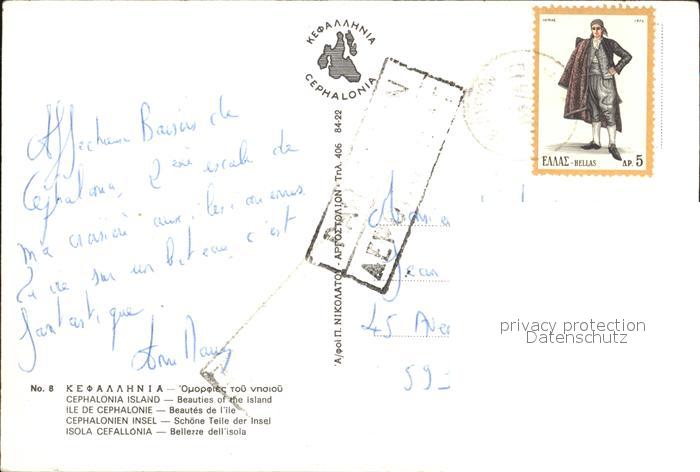 ΚΕΦΑΛΛΗΝΙΑ
CEPHALONIA
1972
ΕΛΛΑΣ-HELLAS ΔΡ. 5
Affectueux Baisers de
Cephalonia, 2eme escale de
ma croisière aux iles
La vie sur un bateau, c'est
fantastique.
Α/φοι Π. ΝΙΚΟΛΑΤΟΥ - ΑΡΓΟΣΤΟΛΙΟΝ - Τηλ. 406 84-22
ΑΕΡ
Jean
45 Ave
59
privacy protection
Datenschutz
No. 8 ΚΕΦΑΛΛΗΝΙΑ — Ὀμορφιές τοῦ νησιοῦ
CEPHALONIA ISLAND — Beauties of the island
ILE DE CEPHALONIE — Beautés de l'île
CEPHALONIEN INSEL — Schöne Teile der Insel
ISOLA CEFALLONIA — Bellezze dell'isola